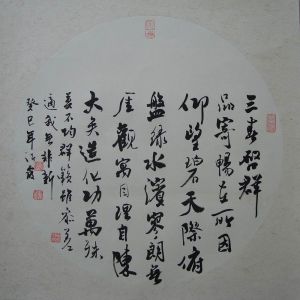 三春啓群
品寄暢在所因
仰望碧天際俯
盤緑水濱寥朗無
厓觀寓目理自陳
大矣造化功萬殊
莫不均群籟雖參差
適我無非新
癸巳年